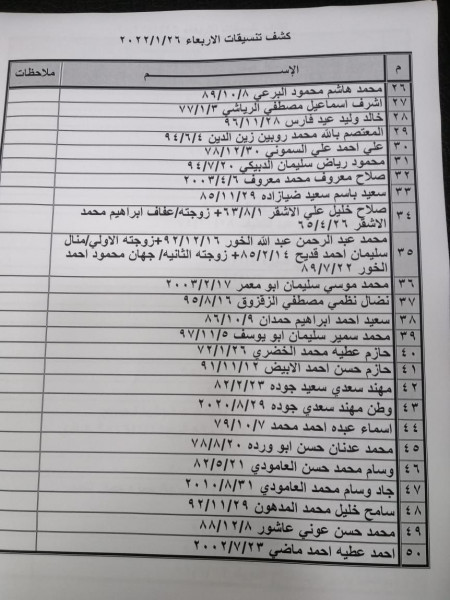 كشف تنسيقات الاربعاء ٢٠٢٢/١/٢٦
م الإســـــــم ملاحظات
٢٦ محمد هاشم محمود البرعي ٨٩/١٠/٨
٢٧ اشرف اسماعيل مصطفي الرياشي ٧٧/١/٣
٢٨ خالد وليد عيد فارس ٩٦/١١/٢٨
٢٩ المعتصم بالله محمد روبين زين الدين ٩٤/٦/٤
٣٠ علي احمد علي السموني ٧٨/١٢/٣٠
٣١ محمود رياض سليمان الدبيكي ٩٤/٧/٢٠
٣٢ صلاح معروف محمد معروف ٢٠٠٣/٤/٦
٣٣ سعيد باسم سعيد ضيازاده ٨٥/١١/٢٩
٣٤ صلاح خليل علي الاشقر ٦٣/٨/١+ زوجته/عفاف ابراهيم محمد
الاشقر ٦٥/٤/٢٦
٣٥ محمد عبد الرحمن عبد الله الخور ٩٢/١٢/١٦+زوجته الاولي/منال
سليمان احمد قديح ٨٥/٢/١٤+ زوجته الثانيه/ جهان محمود احمد
الخور ٨٩/٧/٢٢
٣٦ محمد موسي سليمان ابو معمر ٢٠٠٣/٢/١٧
٣٧ نضال نظمي مصطفي الزقزوق ٩٥/٨/١٦
٣٨ سعيد احمد ابراهيم حمدان ٨٦/١٠/٩
٣٩ محمد سمير سليمان ابو يوسف ٩٧/١١/٥
٤٠ حازم عطيه محمد الخضري ٧٢/١/٢٦
٤١ حازم حسن احمد الابيض ٩١/١١/١٢
٤٢ مهند سعدي سعيد جوده ٨٢/٢/٢٣
٤٣ وطن مهند سعدي جوده ٢٠٢٠/٨/٢٩
٤٤ اسماء عبده احمد محمد ٧٩/١٠/٧
٤٥ محمد عدنان حسن ابو ورده ٧٨/٨/٢٠
٤٦ وسام محمد حسن العامودي ٨٢/٥/٢١
٤٧ جاد وسام محمد العامودي ٢٠١٠/٨/٣١
٤٨ سامح خليل محمد المدهون ٩٢/١١/٢٩
٤٩ محمد حسن عوني عاشور ٨٨/١٢/٨
٥٠ احمد عطيه احمد ماضي ٢٠٠٢/٧/٢٣